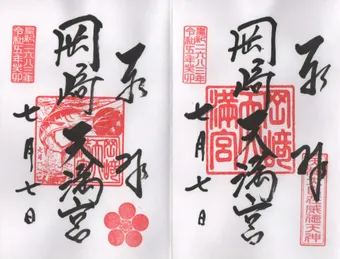 奉拝
岡崎天満宮
七月七日
皇紀二六八三年
令和五年癸卯
奉拝
岡崎天満宮
七月七日
皇紀二六八三年
令和五年癸卯
岡崎
天満宮
威徳天神